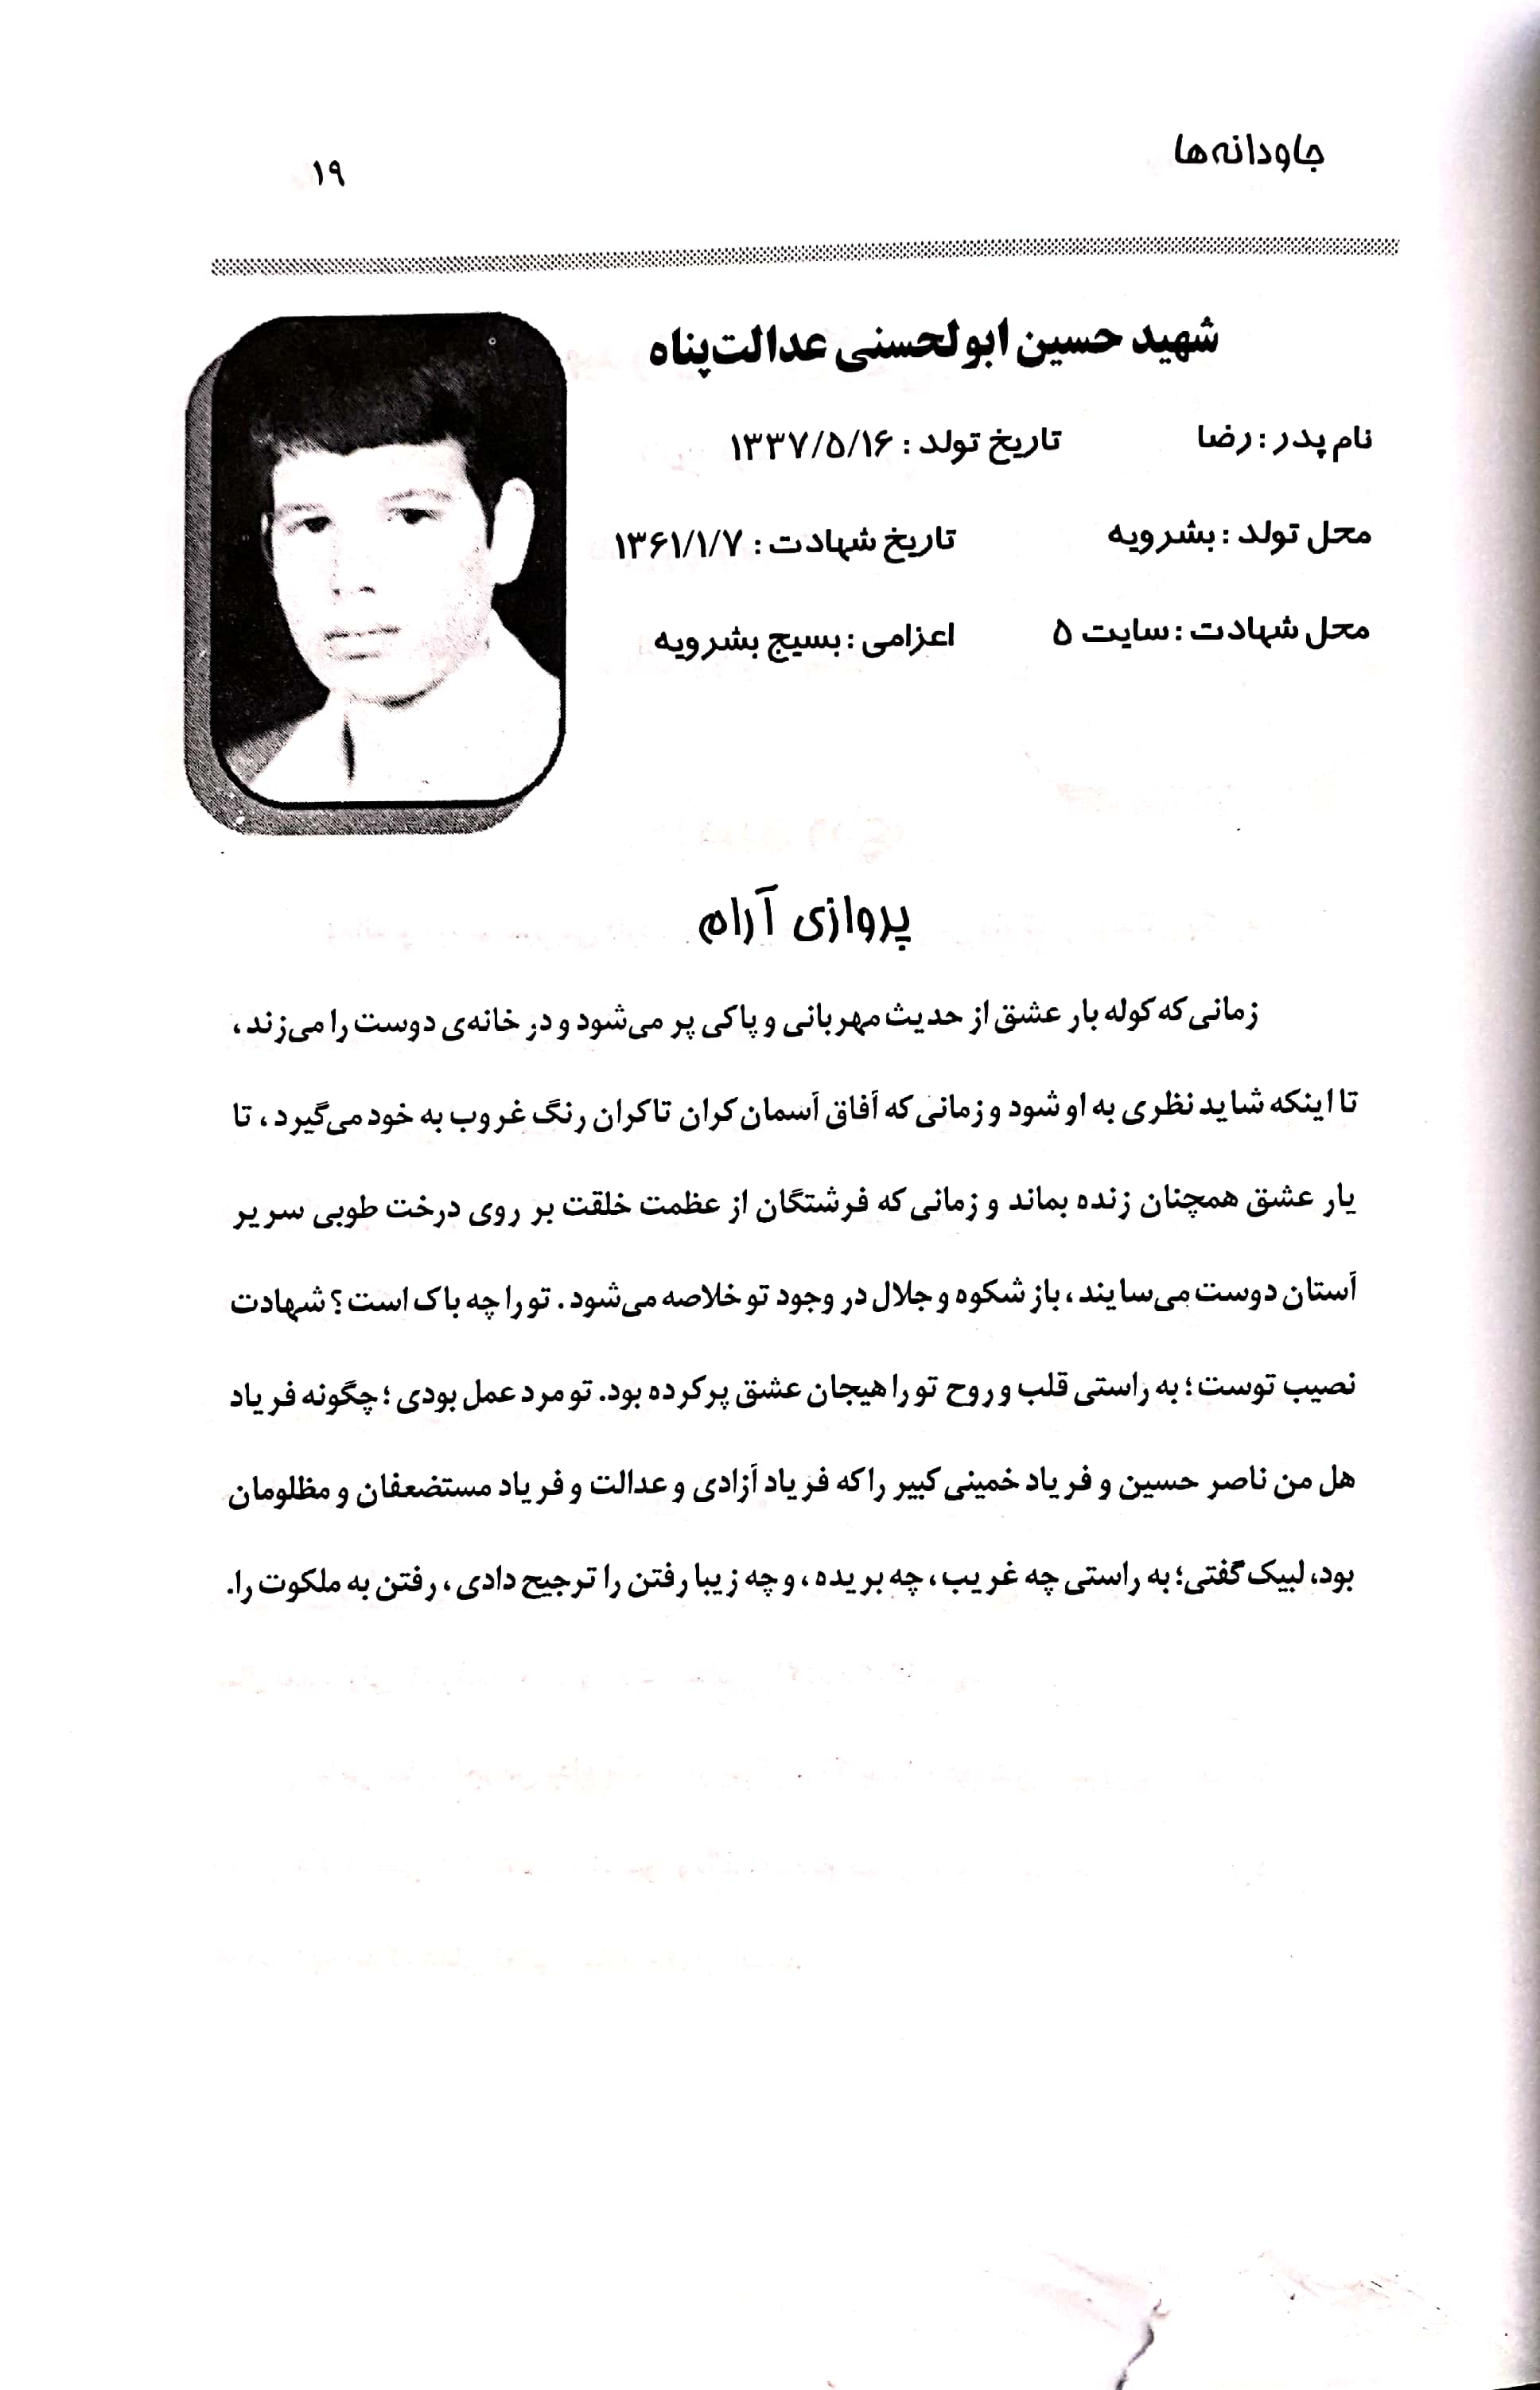 جاودانه‌ها
۱۹
شهید حسین ابولحسنی عدالت‌پناه
نام پدر : رضا
تاریخ تولد : ۱۳۳۷/۵/۱۶
محل تولد : بشرویه
تاریخ شهادت : ۱۳۶۱/۱/۷
محل شهادت : سایت ۵
اعزامی : بسیج بشرویه
پروازی آرام
زمانی که کوله بار عشق از حدیث مهربانی و پاکی پر می‌شود و در خانه‌ی دوست را می‌زند ،
تا اینکه شاید نظری به او شود و زمانی که آفاق آسمان کران تا کران رنگ غروب به خود می‌گیرد ، تا
یار عشق همچنان زنده بماند و زمانی که فرشتگان از عظمت خلقت بر روی درخت طوبی سر بر
آستان دوست می‌سایند ، باز شکوه و جلال در وجود تو خلاصه می‌شود . تو را چه باک است ؟ شهادت
نصیب توست ؛ به راستی قلب و روح تو را هیجان عشق پر کرده بود. تو مرد عمل بودی ؛ چگونه فریاد
هل من ناصر حسین و فریاد خمینی کبیر را که فریاد آزادی و عدالت و فریاد مستضعفان و مظلومان
بود، لبیک گفتی؛ به راستی چه غریب ، چه بریده ، و چه زیبا رفتن را ترجیح دادی ، رفتن به ملکوت را.